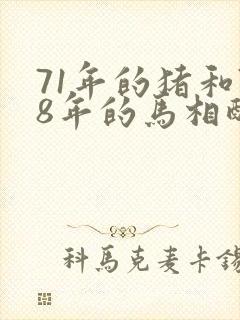 71年的猪和
8年的馬相
科馬克麦卡